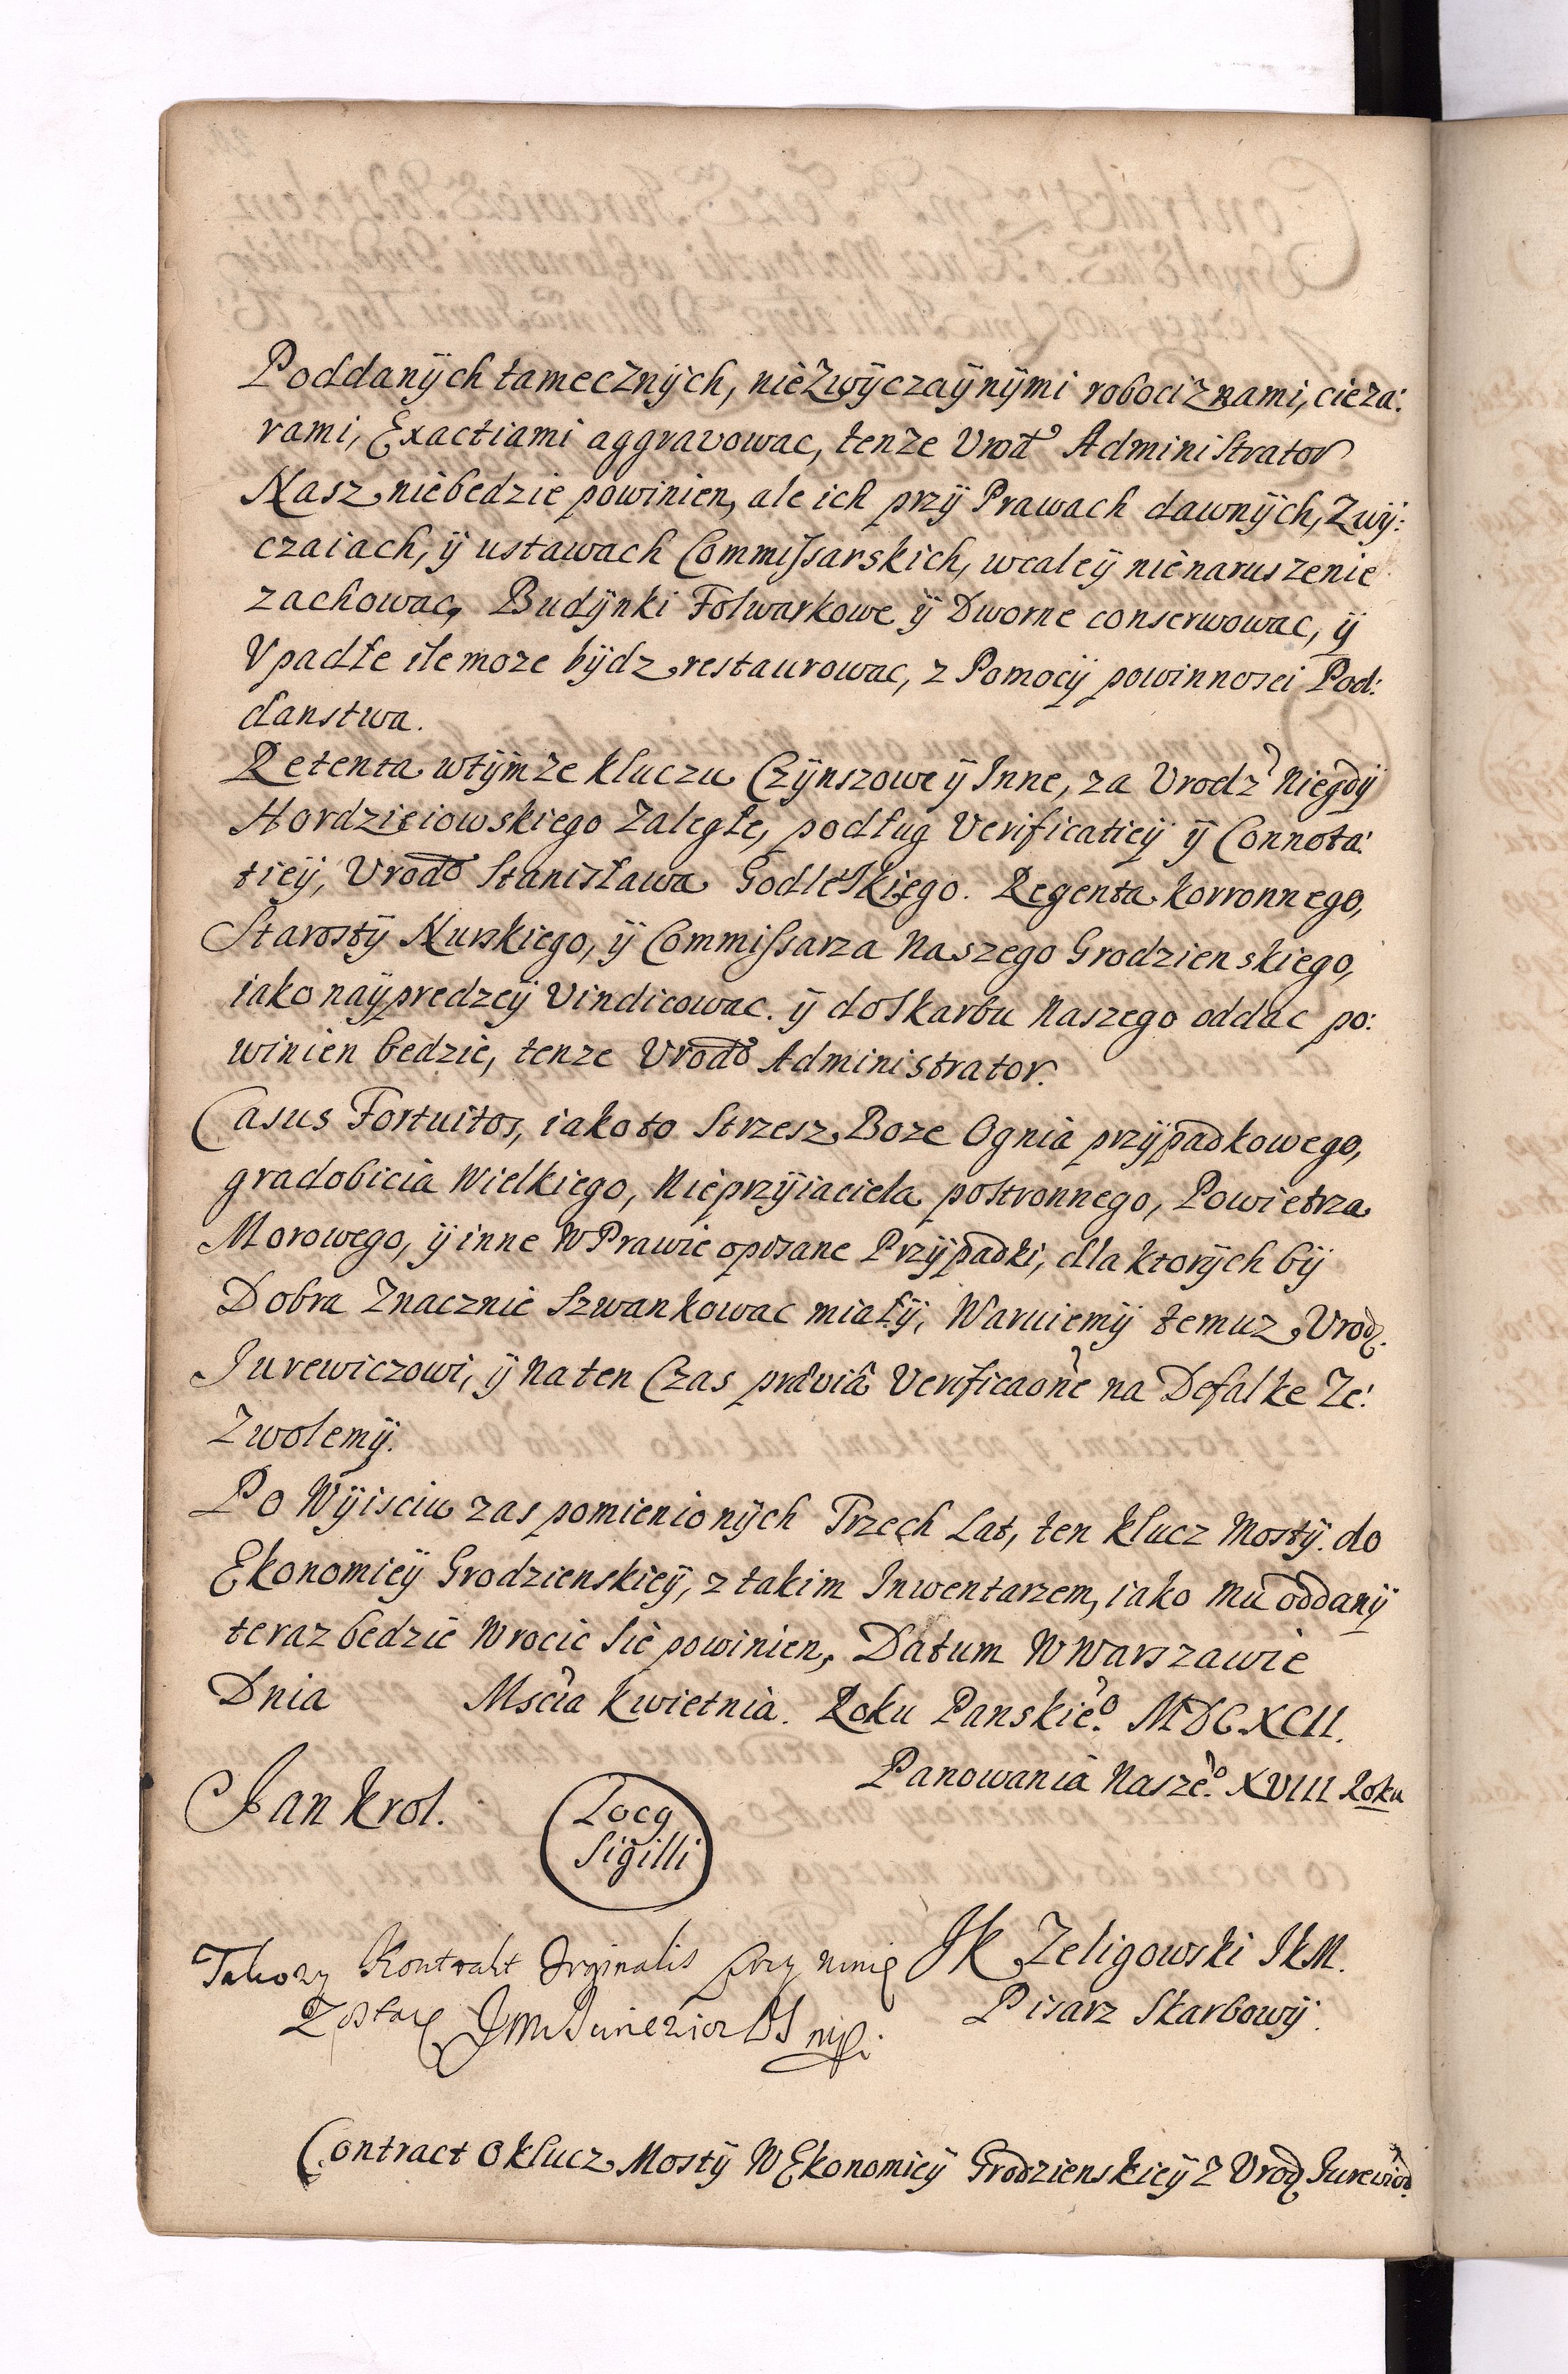 Poddanÿch tamecznÿch, niezwÿczaÿnÿmi robociznami, cieza:
rami, Exactiami aggravowac, tenze Urod° Administrator
Nasz niebedzie powinien, ale ich przÿ Prawach dawnÿch, Zwÿ:
czaiach, ÿ ustawach Commissarskich, wcaleÿ nienaruszenie
zachowac, Budÿnki Folwarkowe ÿ Dworne conserwowac, ÿ
Upadłe ile moze bÿdz restaurowac, z Pomocÿ powinnosci Pod:
danstwa.
Retenta wtÿmze kluczu Czÿnszowe ÿ Inne, za Urodz Niegdÿ
Hordzieiowskiego Zaległe, podług Verificatieÿ ÿ Connota:
tieÿ, Urod° Stanisława Godleskiego. Regenta korronnego,
Starostÿ Nurskiego, ÿ Commissarza Naszego Grodzienskiego,
iako naÿpredzeÿ Vindicowac. ÿ doskarbu Naszego oddac po:
winien bedzie, tenze Urod° Administrator.
Casus Fortuitos, iakoto Strzesz Boze Ognia przÿpadkowego,
gradobicia Wielkiego, Nieprzÿiaciela postronnego, Powietrza
Morowego, ÿ inne W Prawie opisane Przÿpadki, dla ktorÿch bÿ
Dobra Znacznie Szwankowac miałÿ, Waruiemÿ temuz Urodz.
Jurewiczowi, ÿ Naten Czas prævia Verificaone na Defalke Ze:
Zwolemÿ.
Po Wÿisciu zas pomienionÿch Trzech Lat, ten klucz Mostÿ. do
Ekonomieÿ Grodzienskieÿ, z takim Inwentarzem, iako mu oddanÿ
teraz bedzie Wrocic sie powinien, Datum W Warszawie
Dnia Mscia Kwietnia. Roku Panskie°. MDCXCII.
Panowania Nasze°. XVIII Roku
Jan krol.
Locq
Sigilli
Takowy Kontrakt Orginalis przy mnie
JK Zeligowski JKM.
Zostaie
Pisarz Skarbowÿ.
Contract o klucz Mostÿ W Ekonomieÿ Grodzienskieÿ Z Urodz Jurewicz